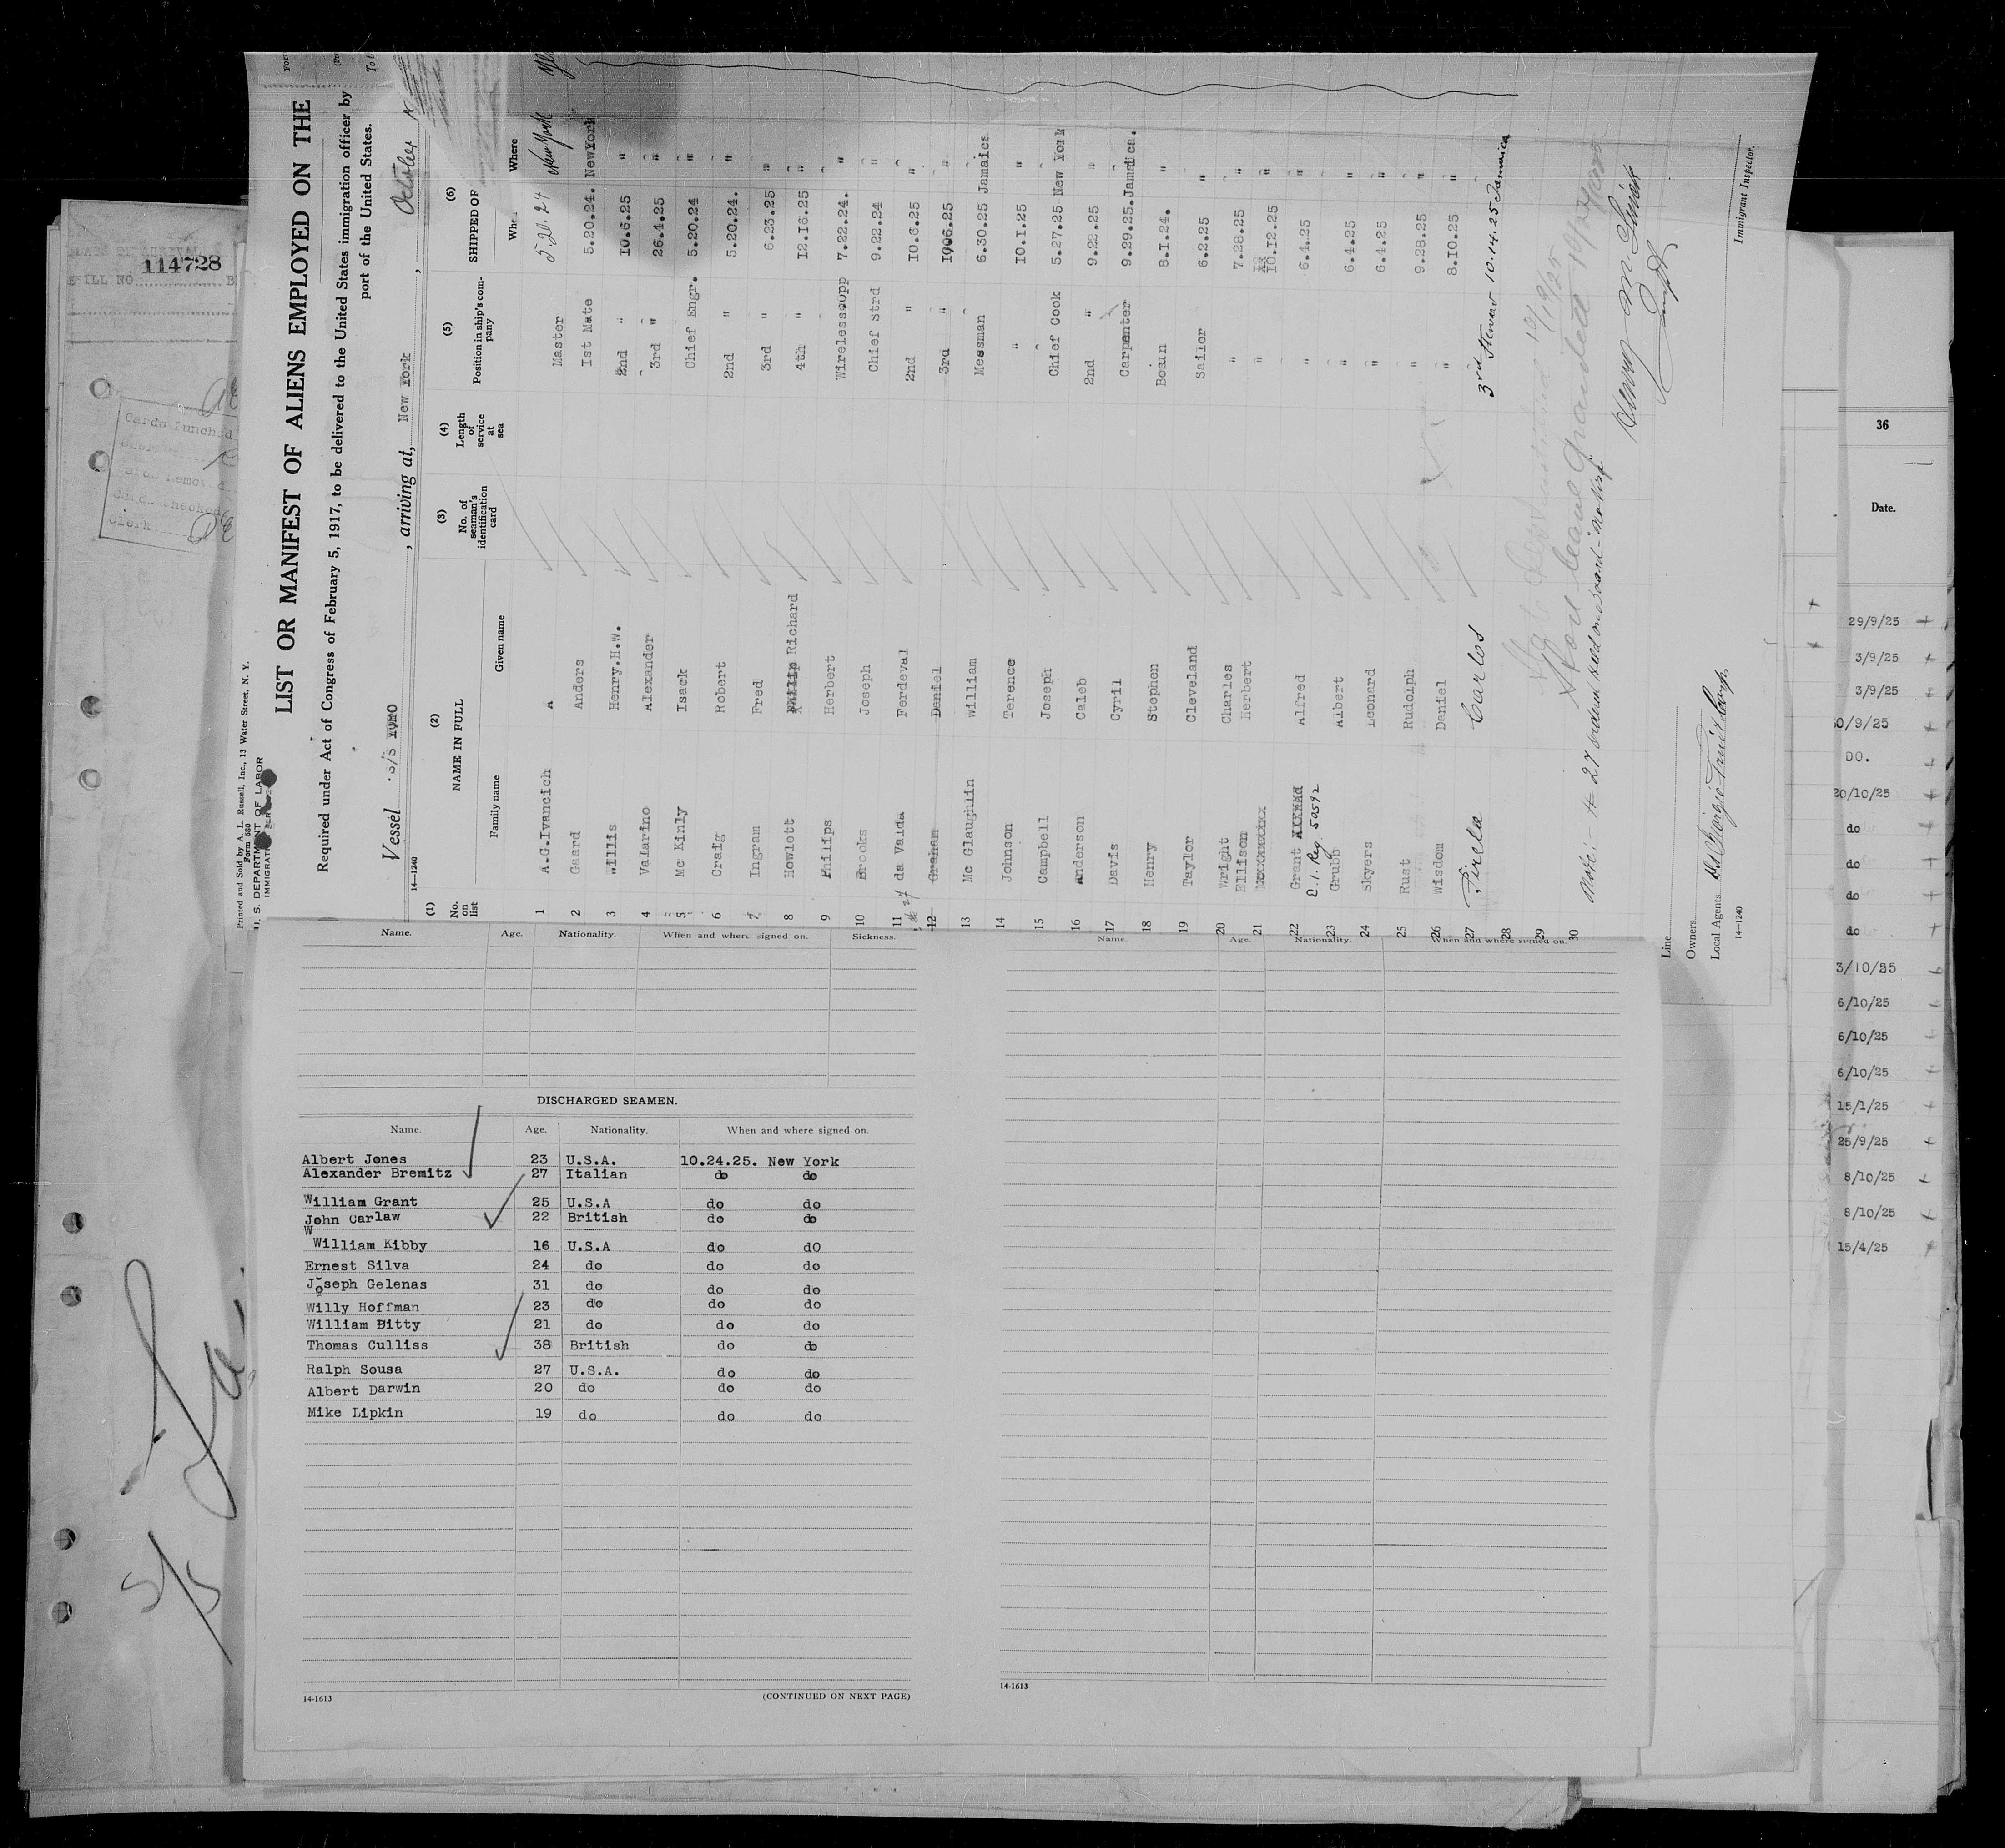 114728
Printed and Sold by A. L. Russell, Inc., 13 Water Street, N. Y.
Form 680
U. S. DEPARTMENT OF LABOR
LIST OR MANIFEST OF ALIENS EMPLOYED ON THE
Required under Act of Congress of February 5, 1917, to be delivered to the United States immigration officer by
port of the United States.
Vessel S/S YORO, arriving at, New York, October
14—1240
(1) (2) (3) (4) (5) (6)
No. on list NAME IN FULL No. of seaman's identification card Length of service at sea Position in ship's company SHIPPED OR
Family name Given name Where
5.20.24 New York
1 A.G.Ivancich A Master
2 Gaard Anders Ist Mate 5.20.24. NewYork
3 Willis Henry.H.W. 2nd " 10.6.25 "
4 Valarino Alexander 3rd " 26.4.25 "
5 Mc Kinly Isack Chief Engr. 5.20.24 "
6 Craig Robert 2nd " 5.20.24. "
7 Ingram Fred 3rd " 6.23.25 "
8 Howlett Richard 4th " 12.16.25 "
9 Philips Herbert Wirelessopp 7.22.24. "
10 Brooks Joseph Chief Strd 9.22.24 "
11 da Valda Ferdeval 2nd " 10.6.25 "
12 Graham Daniel 3rd " 1006.25 "
13 Mc Glaughlin William Messman 6.30.25 Jamaica
14 Johnson Terence " 10.1.25 "
15 Campbell Joseph Chief Cook 5.27.25 New York
16 Anderson Caleb 2nd " 9.22.25 "
17 Davis Cyril Carpenter 9.29.25.Jamaica.
18 Henry Stephen Bosun 8.1.24. "
19 Taylor Cleveland Sailor 6.2.25 "
20 Wright Charles " 7.28.25 "
21 Ellison Herbert " 10.12.25 "
22 Grant Alfred " 6.4.25 "
E.I. Reg. 50592
23 Grubb Albert " 6.4.25 "
24 Skyers Leonard " 6.4.25 "
25 Rust Rudolph " 9.28.25 "
26 Wisdom Daniel " 8.10.25 "
27 Pirela Carlos 3rd Steward 10.14.25 Jamaica
28
29
30
Note:- # 27 ordered held on board
Line
Owners
Local Agents
Immigrant Inspector.
14—1240
Name. Age. Nationality. When and where signed on. Sickness.
Name. Age. Nationality. When and where signed on.
DISCHARGED SEAMEN.
Name. Age. Nationality. When and where signed on.
Albert Jones 23 U.S.A. 10.24.25. New York
Alexander Bremitz 27 Italian do do
William Grant 25 U.S.A do do
John Carlaw 22 British do do
W
William Kibby 16 U.S.A do dO
Ernest Silva 24 do do do
Joseph Gelenas 31 do do do
Willy Hoffman 23 do do do
William Bitty 21 do do do
Thomas Culliss 38 British do do
Ralph Sousa 27 U.S.A. do do
Albert Darwin 20 do do do
Mike Lipkin 19 do do do
14-1613
(CONTINUED ON NEXT PAGE)
14-1613
36
Date.
29/9/25
3/9/25
3/9/25
0/9/25
DO.
20/10/25
do
do
do
do
3/10/25
6/10/25
6/10/25
6/10/25
15/1/25
25/9/25
8/10/25
8/10/25
15/4/25